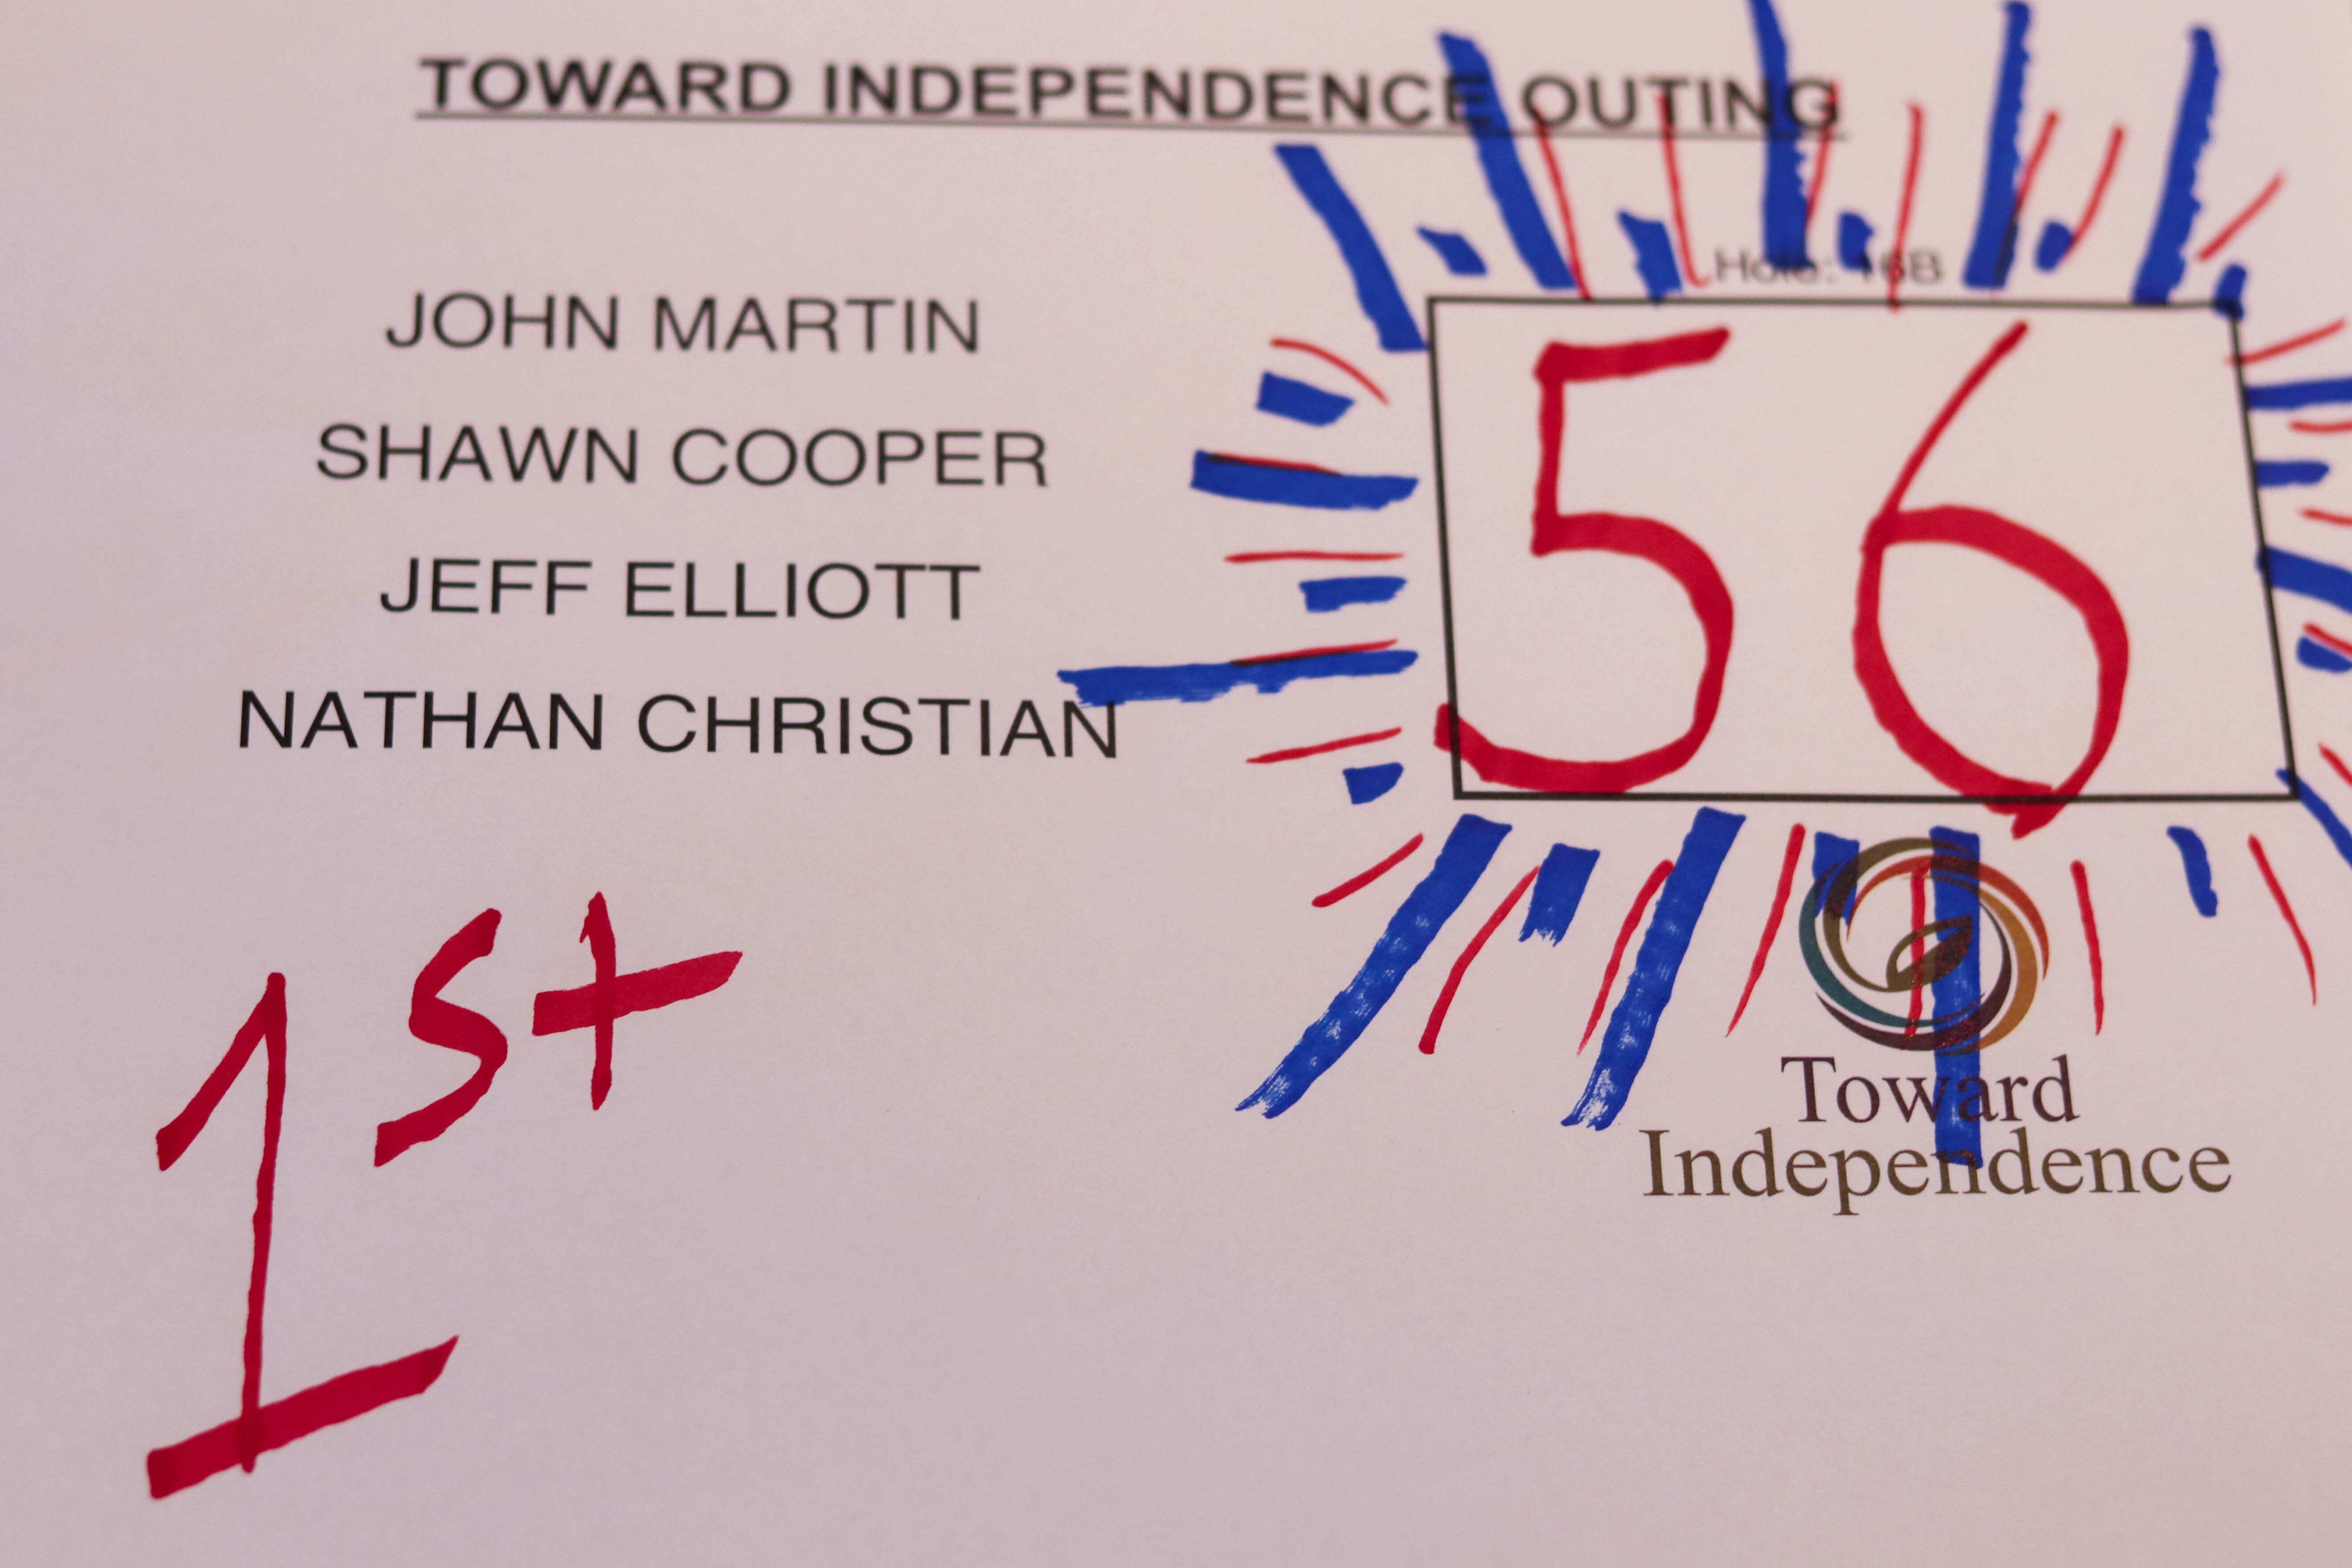 TOWARD INDEPENDENCE OUTING
JOHN MARTIN
SHAWN COOPER
JEFF ELLIOTT
NATHAN CHRISTIAN
Hole: 16B
56
1st
Toward
Independence